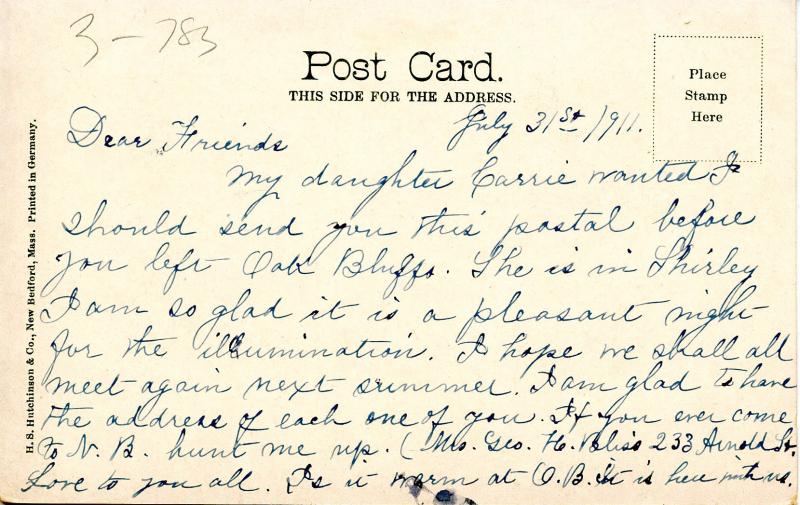 3-783
Post Card.
THIS SIDE FOR THE ADDRESS.
Place
Stamp
Here
H. S. Hutchinson & Co., New Bedford, Mass. Printed in Germany.
July 31st/1911.
Dear Friends
My daughter Carrie wanted I
should send you this postal before
you left Oak Bluffs. She is in Shirley
I am so glad it is a pleasant night
for the illumination. I hope we shall all
meet again next summer. I am glad to have
the address of each one of you. If you ever come
to N. B. hunt me up. (Mrs. Geo. H. Bliss 233 Arnold St.
Love to you all. Is it warm at O.B. it is here with us.